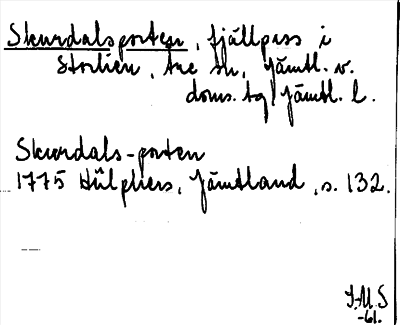 Skurdalsporten, fjällpass i
Storlien, Åre sn, Jämtl. v.
doms. tg, Jämtl. l.
Skurdals-porten
1775 Hülphers, Jämtland, s. 132.
I.M.S
-61.